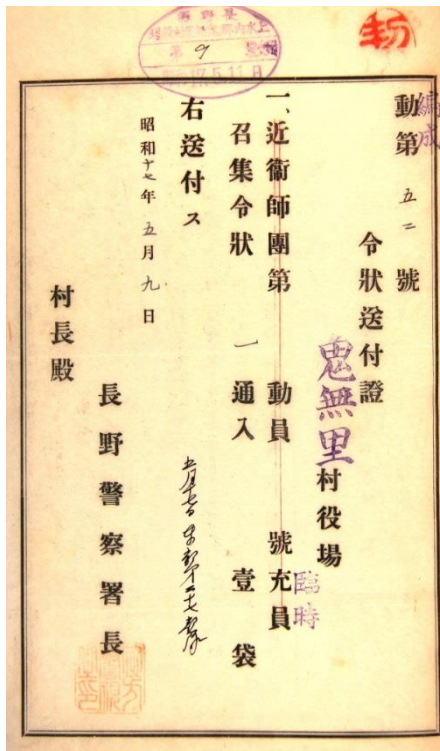 編成
動第五二號
令狀送付證
鬼無里村役場
臨時
一、近衞師團第 動員 號充員
召集令狀 一通入 壹袋
右送付ス
昭和十七年五月九日
長野警察署長
村長殿
第9號
17.5.11